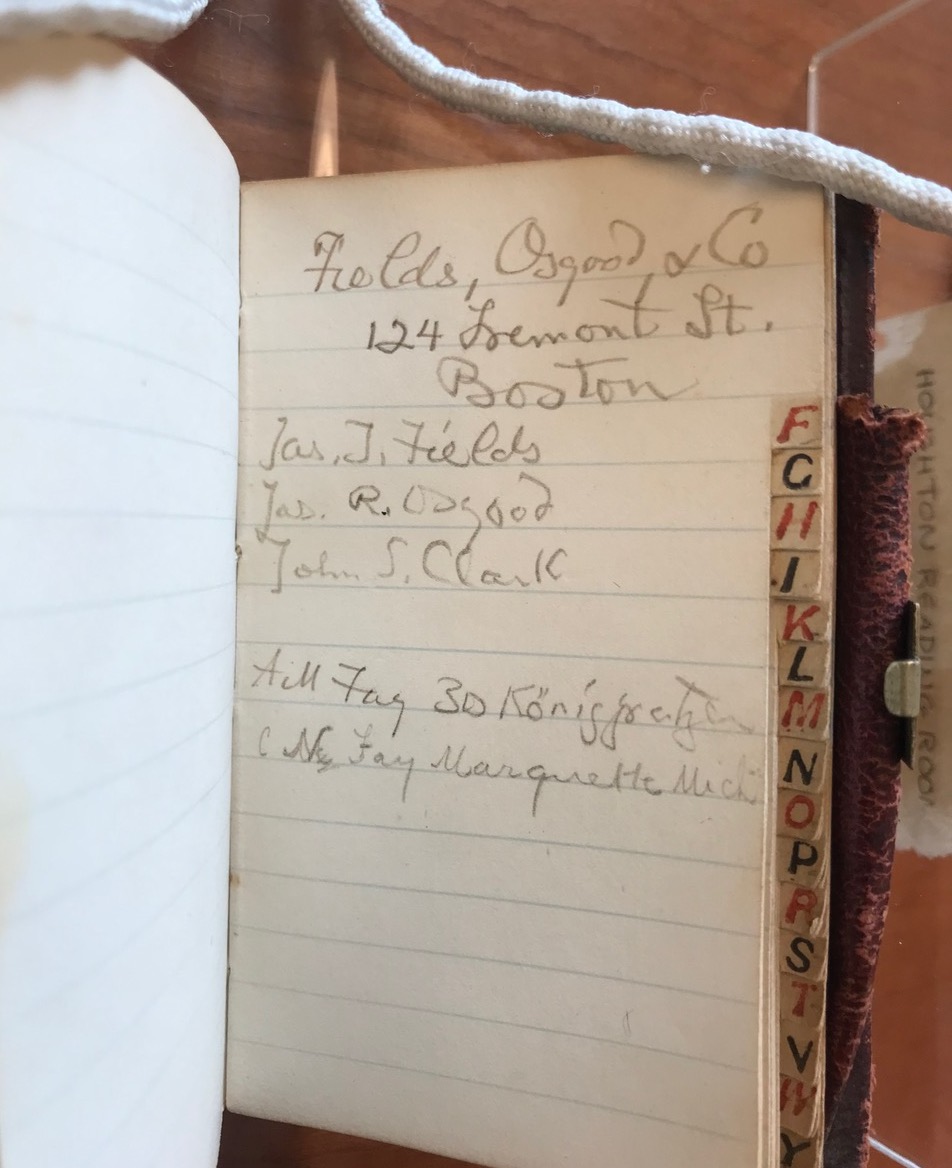 Fields, Osgood, & Co
124 Tremont St.
Boston
Jas. T. Fields
Jas. R. Osgood
John S. Clark
Fay 30
Fay Marquette Mich
F
G
H
I
K
L
M
N
O
P
R
S
T
V
W
Y
HOUGHTON READING ROOM